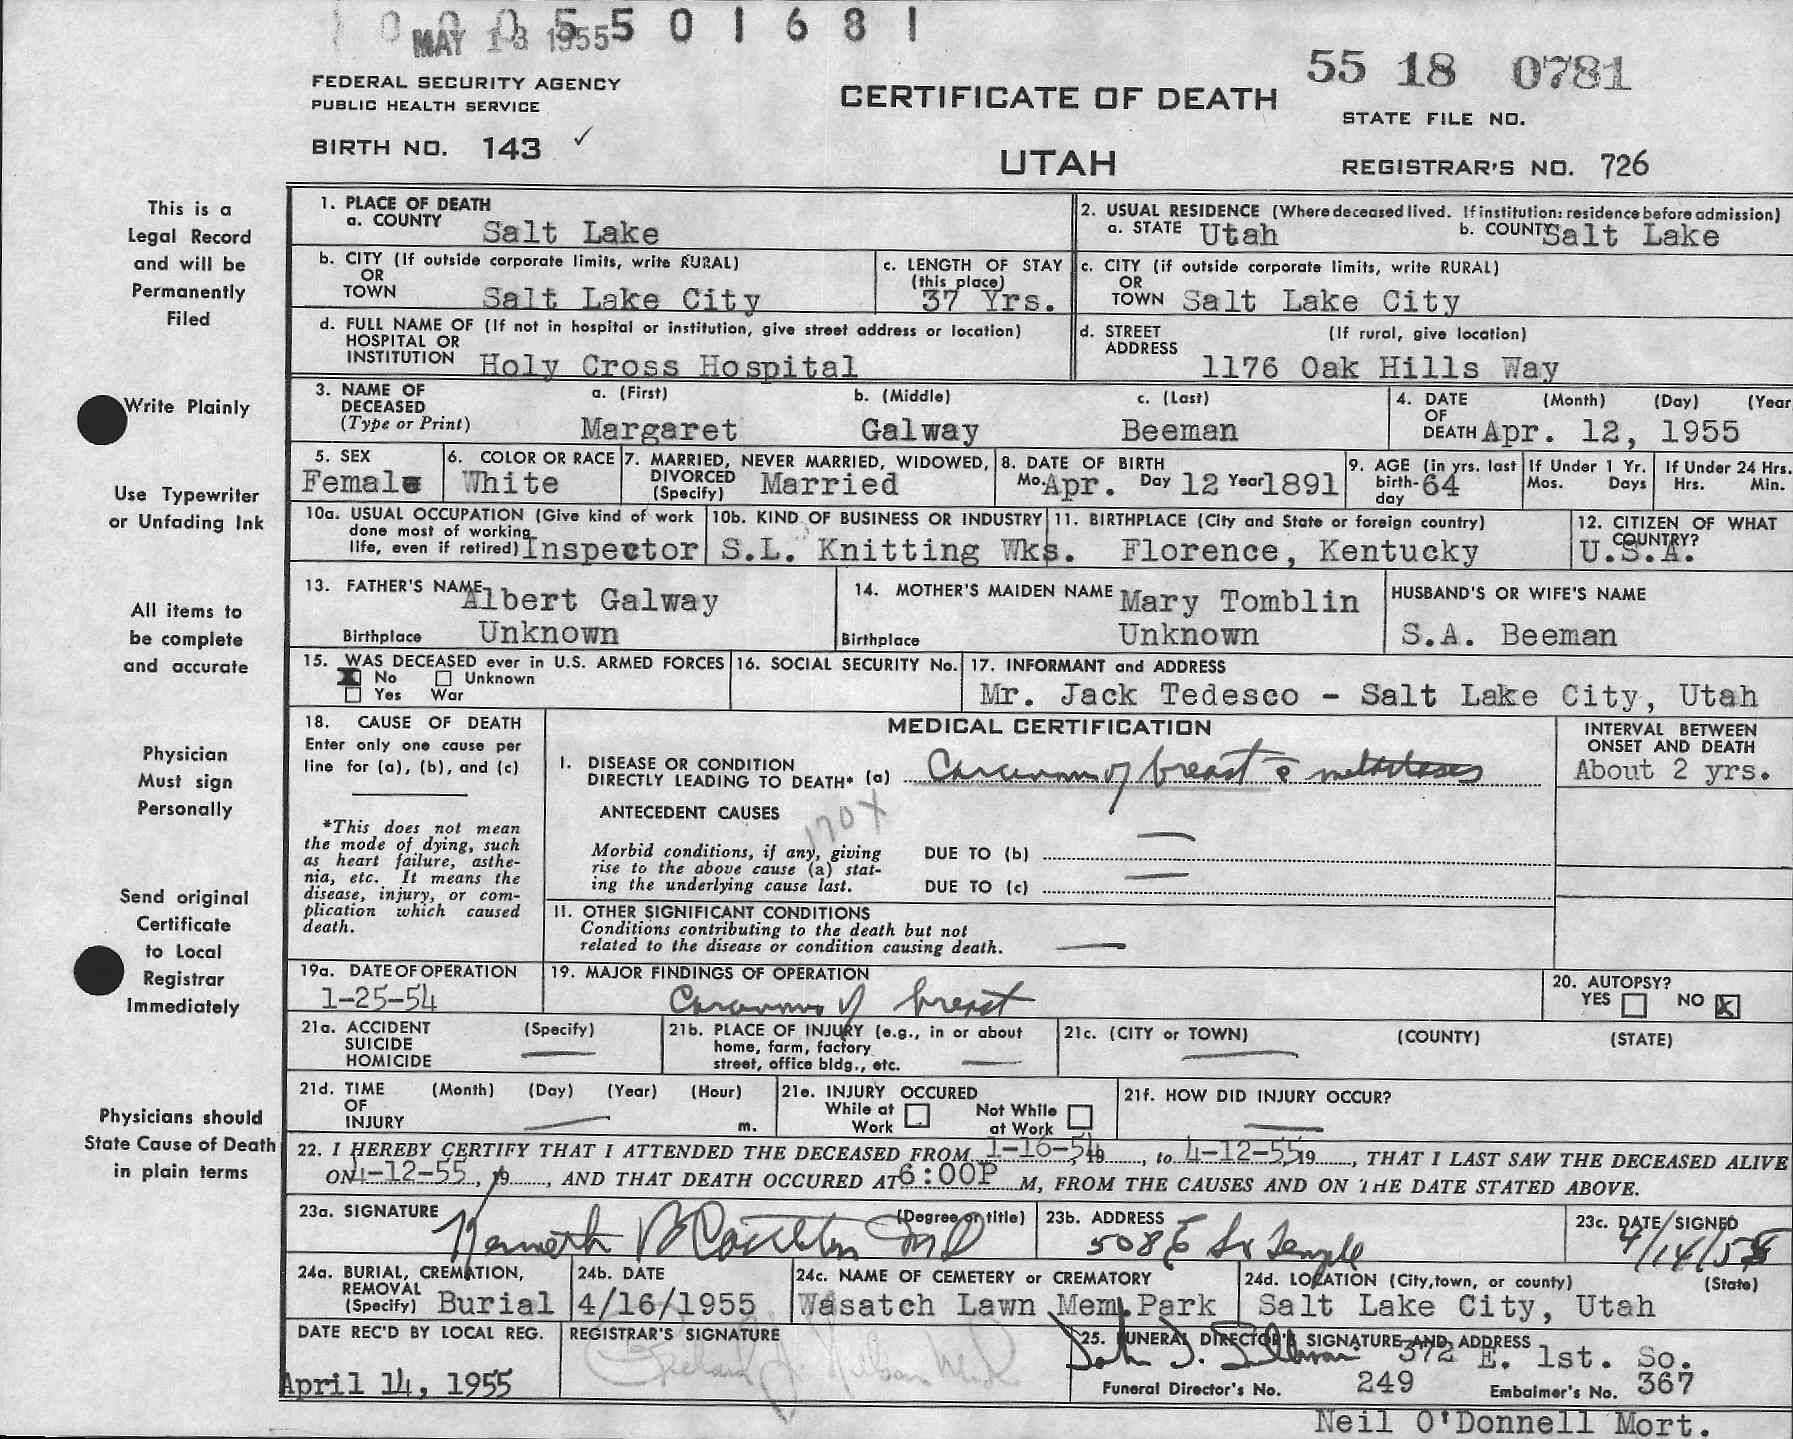 MAY 13 1955 5 0 1 6 8 1
55 18 0781
FEDERAL SECURITY AGENCY
PUBLIC HEALTH SERVICE
CERTIFICATE OF DEATH
STATE FILE NO.
BIRTH NO. 143 ✓
UTAH
REGISTRAR'S NO. 726
This is a
Legal Record
and will be
Permanently
Filed
Write Plainly
Use Typewriter
or Unfading Ink
All items to
be complete
and accurate
Physician
Must sign
Personally
Send original
Certificate
to Local
Registrar
Immediately
Physicians should
State Cause of Death
in plain terms
1. PLACE OF DEATH
a. COUNTY Salt Lake
2. USUAL RESIDENCE (Where deceased lived. If institution: residence before admission)
a. STATE Utah b. COUNTY Salt Lake
b. CITY (If outside corporate limits, write RURAL)
OR
TOWN Salt Lake City
c. LENGTH OF STAY
(this place)
37 Yrs.
c. CITY (if outside corporate limits, write RURAL)
OR
TOWN Salt Lake City
d. FULL NAME OF (If not in hospital or institution, give street address or location)
HOSPITAL OR
INSTITUTION Holy Cross Hospital
d. STREET (If rural, give location)
ADDRESS
1176 Oak Hills Way
3. NAME OF
DECEASED
(Type or Print)
a. (First) b. (Middle) c. (Last)
Margaret Galway Beeman
4. DATE (Month) (Day) (Year
OF
DEATH Apr. 12, 1955
5. SEX
Female
6. COLOR OR RACE
White
7. MARRIED, NEVER MARRIED, WIDOWED,
DIVORCED
(Specify) Married
8. DATE OF BIRTH
Mo. Apr. Day 12 Year 1891
9. AGE (in yrs. last
birth-
day 64
If Under 1 Yr.
Mos. Days
If Under 24 Hrs.
Hrs. Min.
10a. USUAL OCCUPATION (Give kind of work
done most of working
life, even if retired) Inspector
10b. KIND OF BUSINESS OR INDUSTRY
S.L. Knitting Wks.
11. BIRTHPLACE (City and State or foreign country)
Florence, Kentucky
12. CITIZEN OF WHAT
COUNTRY?
U.S.A.
13. FATHER'S NAME Albert Galway
Birthplace Unknown
14. MOTHER'S MAIDEN NAME Mary Tomblin
Birthplace Unknown
HUSBAND'S OR WIFE'S NAME
S.A. Beeman
15. WAS DECEASED ever in U.S. ARMED FORCES
No Unknown
Yes War
16. SOCIAL SECURITY No.
17. INFORMANT and ADDRESS
Mr. Jack Tedesco - Salt Lake City, Utah
18. CAUSE OF DEATH
Enter only one cause per
line for (a), (b), and (c)
*This does not mean
the mode of dying, such
as heart failure, asthe-
nia, etc. It means the
disease, injury, or com-
plication which caused
death.
MEDICAL CERTIFICATION
I. DISEASE OR CONDITION
DIRECTLY LEADING TO DEATH* (a) Carcinoma of breast c̄ metastases
INTERVAL BETWEEN
ONSET AND DEATH
About 2 yrs.
ANTECEDENT CAUSES
170X
Morbid conditions, if any, giving
rise to the above cause (a) stat-
ing the underlying cause last.
DUE TO (b) —
DUE TO (c) —
II. OTHER SIGNIFICANT CONDITIONS
Conditions contributing to the death but not
related to the disease or condition causing death. —
19a. DATE OF OPERATION
1-25-54
19. MAJOR FINDINGS OF OPERATION
Carcinoma of breast
20. AUTOPSY?
YES NO X
21a. ACCIDENT (Specify)
SUICIDE
HOMICIDE —
21b. PLACE OF INJURY (e.g., in or about
home, farm, factory
street, office bldg., etc. —
21c. (CITY or TOWN) (COUNTY) (STATE)
—
21d. TIME (Month) (Day) (Year) (Hour)
OF
INJURY — m.
21e. INJURY OCCURED
While at Work
Not While at Work
21f. HOW DID INJURY OCCUR?
—
22. I HEREBY CERTIFY THAT I ATTENDED THE DECEASED FROM 1-16-54, 19, to 4-12-55, 19, THAT I LAST SAW THE DECEASED ALIVE
ON 4-12-55, 19, AND THAT DEATH OCCURED AT 6:00P M, FROM THE CAUSES AND ON THE DATE STATED ABOVE.
23a. SIGNATURE (Degree or title)
Kenneth B Castleton MD
23b. ADDRESS
508 E So Temple
23c. DATE SIGNED
4/14/55
24a. BURIAL, CREMATION,
REMOVAL
(Specify) Burial
24b. DATE
4/16/1955
24c. NAME OF CEMETERY or CREMATORY
Wasatch Lawn Mem.Park
24d. LOCATION (City, town, or county) (State)
Salt Lake City, Utah
DATE REC'D BY LOCAL REG.
April 14, 1955
REGISTRAR'S SIGNATURE
25. FUNERAL DIRECTOR'S SIGNATURE AND ADDRESS
372 E. 1st. So.
Funeral Director's No. 249 Embalmer's No. 367
Neil O'Donnell Mort.